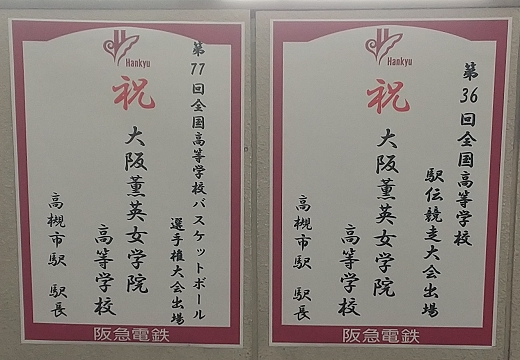 Hankyu
祝
第77回全国高等学校バスケットボール
選手権大会出場
大阪薫英女学院
高等学校
高槻市駅 駅長
阪急電鉄
Hankyu
祝
第36回全国高等学校
駅伝競走大会出場
大阪薫英女学院
高等学校
高槻市駅 駅長
阪急電鉄